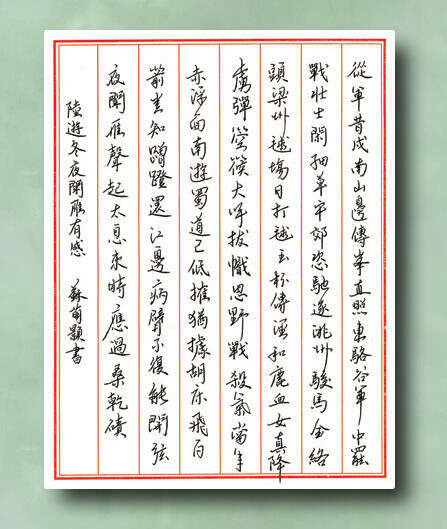 從軍昔戍南山邊傳烽直照東駱谷軍中罷
戰壯士閑細草平郊恣馳逐洮州駿馬金絡
頭梁州毬場日打毬玉杯傳酒和鹿血女真降
虜彈箜篌大呼拔幟思野戰殺氣當年
赤浮面南遊蜀道已低摧猶據胡床飛百
箭豈知蹭蹬還江邊病臂不復能開弦
夜聞雁聲起太息來時應過桑乾磧
陸遊冬夜聞雁有感 蘇 書